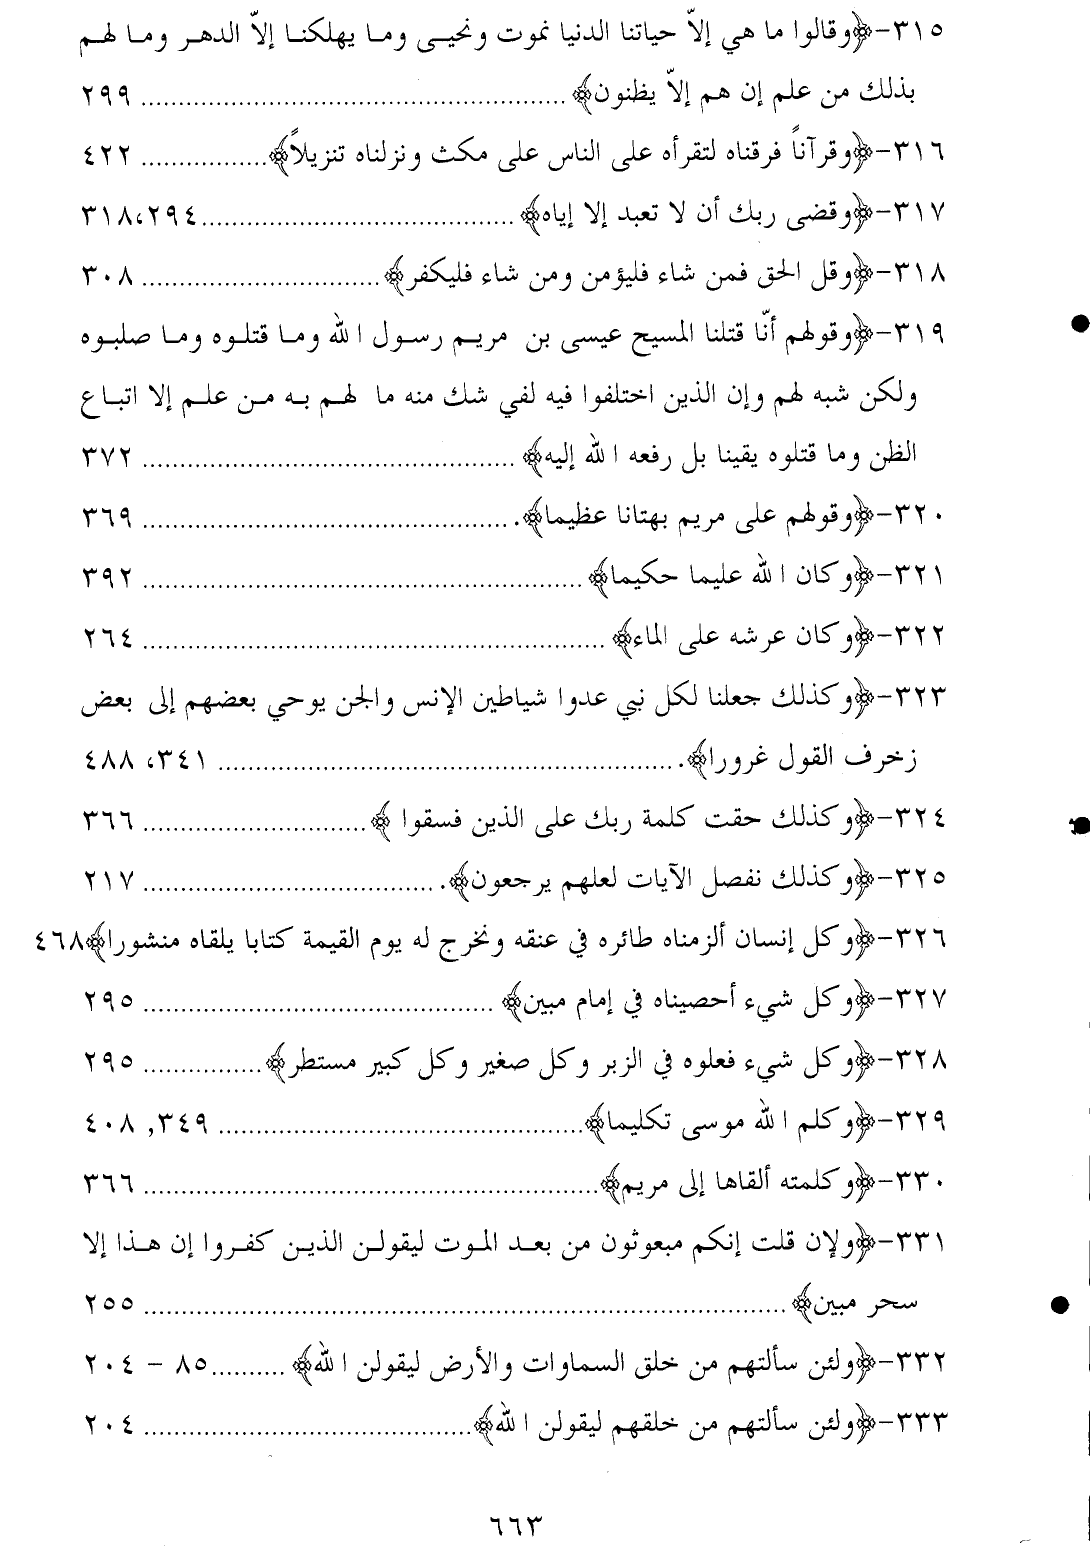 ٣١٥-﴿وقالوا ما هي إلاّ حياتنا الدنيا نموت ونحيى وما يهلكنا إلاّ الدهر وما لهم
بذلك من علم إن هم إلاّ يظنون﴾ ........ ٢٩٩
٣١٦-﴿وقرآناً فرقناه لتقرأه على الناس على مكث ونزلناه تنزيلاً﴾ ........ ٤٢٢
٣١٧-﴿وقضى ربك أن لا تعبد إلا إياه﴾ ........ ٣١٨،٢٩٤
٣١٨-﴿وقل الحق فمن شاء فليؤمن ومن شاء فليكفر﴾ ........ ٣٠٨
٣١٩-﴿وقولهم أنّا قتلنا المسيح عيسى بن مريم رسول الله وما قتلوه وما صلبوه
ولكن شبه لهم وإن الذين اختلفوا فيه لفي شك منه ما لهم به من علم إلا اتباع
الظن وما قتلوه يقينا بل رفعه الله إليه﴾ ........ ٣٧٢
٣٢٠-﴿وقولهم على مريم بهتانا عظيما﴾ ........ ٣٦٩
٣٢١-﴿وكان الله عليما حكيما﴾ ........ ٣٩٢
٣٢٢-﴿وكان عرشه على الماء﴾ ........ ٢٦٤
٣٢٣-﴿وكذلك جعلنا لكل نبي عدوا شياطين الإنس والجن يوحي بعضهم إلى بعض
زخرف القول غرورا﴾ ........ ٣٤١، ٤٨٨
٣٢٤-﴿وكذلك حقت كلمة ربك على الذين فسقوا ﴾ ........ ٣٦٦
٣٢٥-﴿وكذلك نفصل الآيات لعلهم يرجعون﴾ ........ ٢١٧
٣٢٦-﴿وكل إنسان ألزمناه طائره في عنقه ونخرج له يوم القيمة كتابا يلقاه منشورا﴾٤٦٨
٣٢٧-﴿وكل شيء أحصيناه في إمام مبين﴾ ........ ٢٩٥
٣٢٨-﴿وكل شيء فعلوه في الزبر وكل صغير وكل كبير مستطر﴾ ........ ٢٩٥
٣٢٩-﴿وكلم الله موسى تكليما﴾ ........ ٣٤٩, ٤٠٨
٣٣٠-﴿وكلمته ألقاها إلى مريم﴾ ........ ٣٦٦
٣٣١-﴿ولإن قلت إنكم مبعوثون من بعد الموت ليقولن الذين كفروا إن هذا إلا
سحر مبين﴾ ........ ٢٥٥
٣٣٢-﴿ولئن سألتهم من خلق السماوات والأرض ليقولن الله﴾ ........ ٨٥ – ٢٠٤
٣٣٣-﴿ولئن سألتهم من خلقهم ليقولن الله﴾ ........ ٢٠٤
٦٦٣